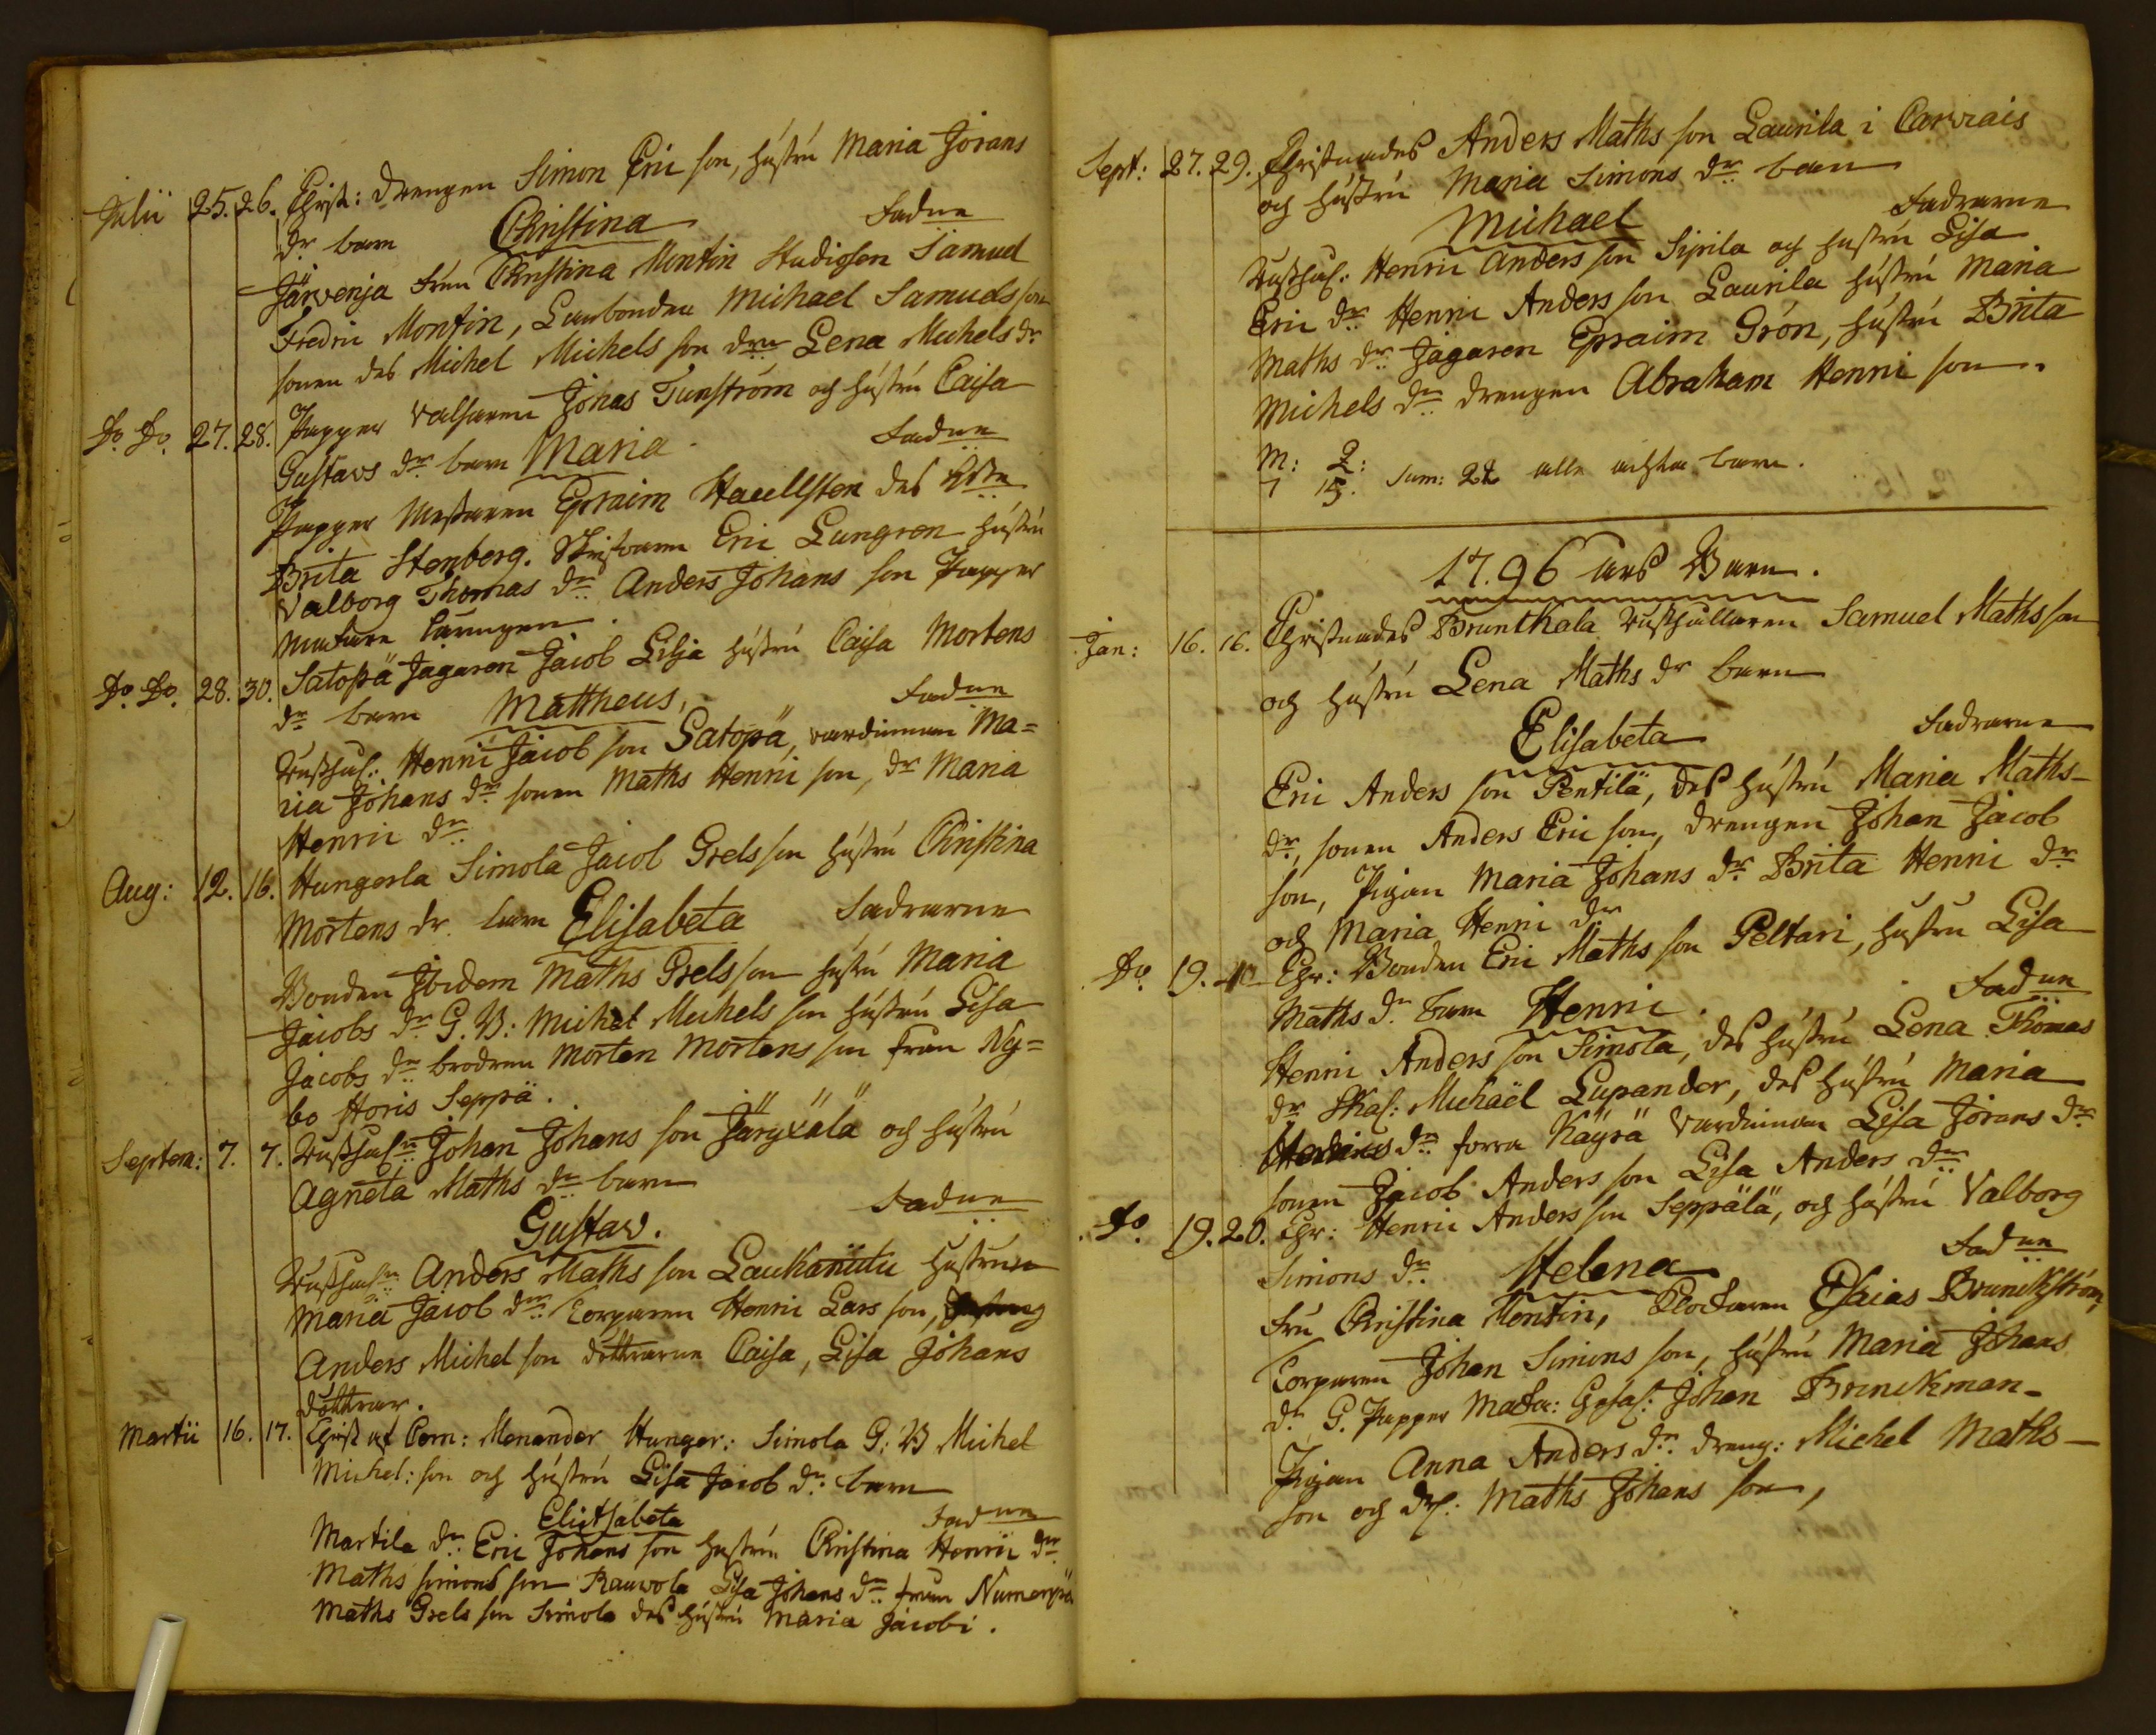 Julii 25. 26. Christ: drengen Simon Eric son, hustru Maria Jörans
dr barn Christina Fadne
Järvenja Frun Christina Montin Studiosen Samuel
Fredric Montin, Lanbonden Michael Samuels son
sonen des Michel Michels son drn Lena Michels dr
Do Do 27. 28. Papper valsaren Johas Tunström och hustru Caisa
Gustavs dr barn Maria. Fadne
Papper Mestaren Epraim Haeellsten des
Brita Stenberg. Eric Lungren hustru
Valborg Thomas dr Anders Johans son Papper
Do Do. 28. 30. Satopä Jägaren Jacob Lilja hustru Caisa Mortens
dr barn Mattheus, Fadne
Rusthål: Henric Jacob son Satopä, värdinnan Ma=
ria Johans dr sonen Maths Henric son, dr Maria
Henric dr
Aug: 12. 16. Hungerla Simola Jacob Grelsson hustru Christina
Mortens dr. barn Elisabeta Fadrarne
Bonden Maths Grelsson hustru Maria
Jacobs dr G. B: Michel Michels son hustru Lisa
Jacobs dr brodren Morten Mortens son från Ny=
bo Horis Seppä.
Septem: 7. 7. Johan Johans son Järyxälä och hustru
Agneta Maths dr barn
Gustav. Fadne
Anders Maths son Laukanittu hustrun
Maria Jacob dr Torparen Henric Lars son,
Anders Michel son döttrarne Caisa, Lisa Johans
döttrar.
Martii 16. 17. Christ af Com: Menander Hunger: Simola G: B Michel
Michel: son och hustru Lisa Jacob dr barn
Elictsabeta Fadne
Martila dr Eric Johans son hustru Christina Henric dr
Maths simons son Rauvola Lisa Johans dr från Numerpä
Maths Grels son Simola des hustru Maria Jacobi.
Sept: 27. 29. Christnades Anders Maths son Laurila i Carviais
och hustru Maria Simons dr barn
Michael Fadrarne
Rusthål: Henric Anders son Sipila och hustru Lisa
Eric dr Henric Anders son Laurila hustru Maria
Maths dr Jägaren Epraim Grön, hustru Brita
Michels dr drengen Abraham Henric son.
M: 2:
7 15. Sum: 22 alla ächta barn.
1796 års Barn.
Jan: 16. 16. Christnades Brunkhala Rusthållaren Samuel Mathsson
och hustru Lena Maths dr barn
Elisabeta Fadrarne
Eric Anders son Pentilä, des hustru Maria Maths-
dr, sonen Anders Eric son, drengen Johan Jacob
son, Pigan Maria Johans dr Brita Henric dr
och Maria Henric dr
Do 19. Chr: Bonden Eric Maths son Peltari, hustru Lisa
Maths dr barn Henric. Fadne
Henric Anders son Simola, des hustru Lena Thomas
dr Michaël Lupander, des hustru Maria
dr forra Käyrä värdinnan Lisa Jörans dr
sonen Jacob Anders son Lisa Anders dr
Do. 19. 20. Chr: Henric Anders son Seppälä, och hustru Valborg
Simons dr Helena Fadne
Fru Christina Montin, Klockaren Esaias Brunckström,
Torparen Johan Simons son, hustru Maria Johans
dr G. Papper Gesäl: Johan Brunckman-
Pigan Anna Anders dr dreng: Michel Maths-
son och Maths Johans son,